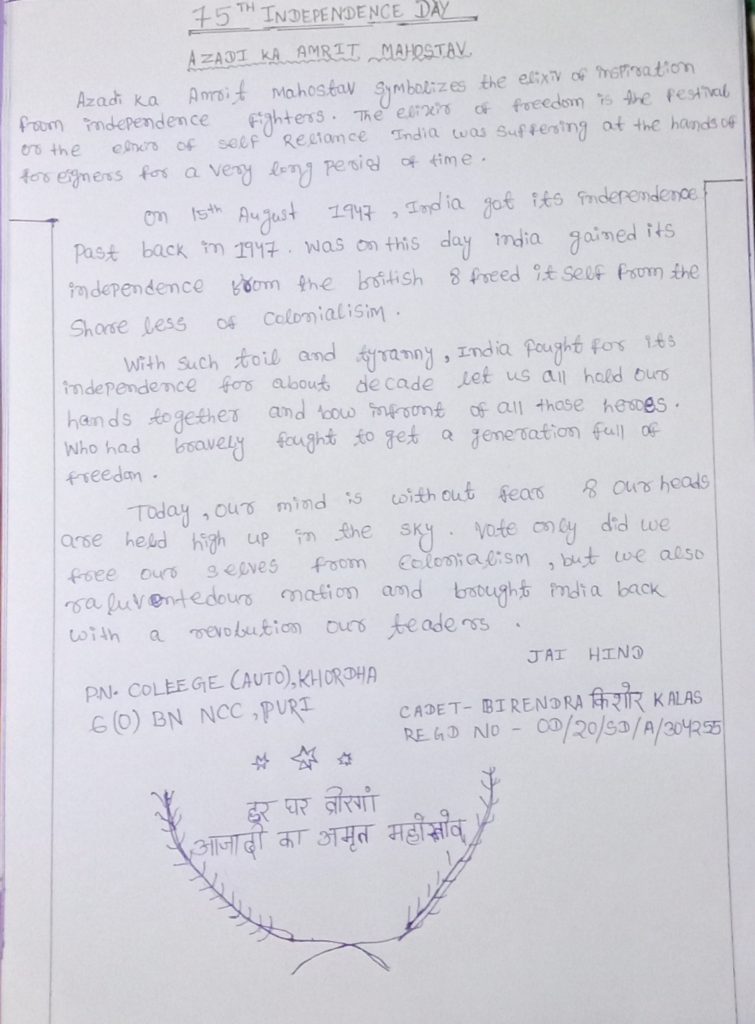 75TH INDEPENDENCE DAY
AZADI KA AMRIT MAHOSTAV
Azadi Ka Amrit Mahostav Symbolizes the elixiv of inspiration
from independence fighters. The elixir of freedom is the festival
or the elixir of self Reliance India was suffering at the hands of
foreigners for a very long period of time.
on 15th August 1947, India got its independence
Past back in 1947. was on this day india gained its
independence from the british & freed it self from the
Share less of colonialisim.
With such toil and tyranny, India fought for its
independence for about decade let us all hold our
hands together and bow infront of all those heroes.
Who had bravely fought to get a generation full of
freedan.
Today, our mind is without fear & our heads
are held high up in the sky. Note only did we
free our selves from Colonialism, but we also
nation and brought india back
with a revolution our leaders.
JAI HIND
P.N. COLEEGE (AUTO), KHORDHA
6(O) BN NCC, PURI
CADET- BIRENDRA किशोर KALAS
REGD NO - OD/20/SD/A/304255
हर घर तीरगां
आजादी का अमृत महोत्सोव